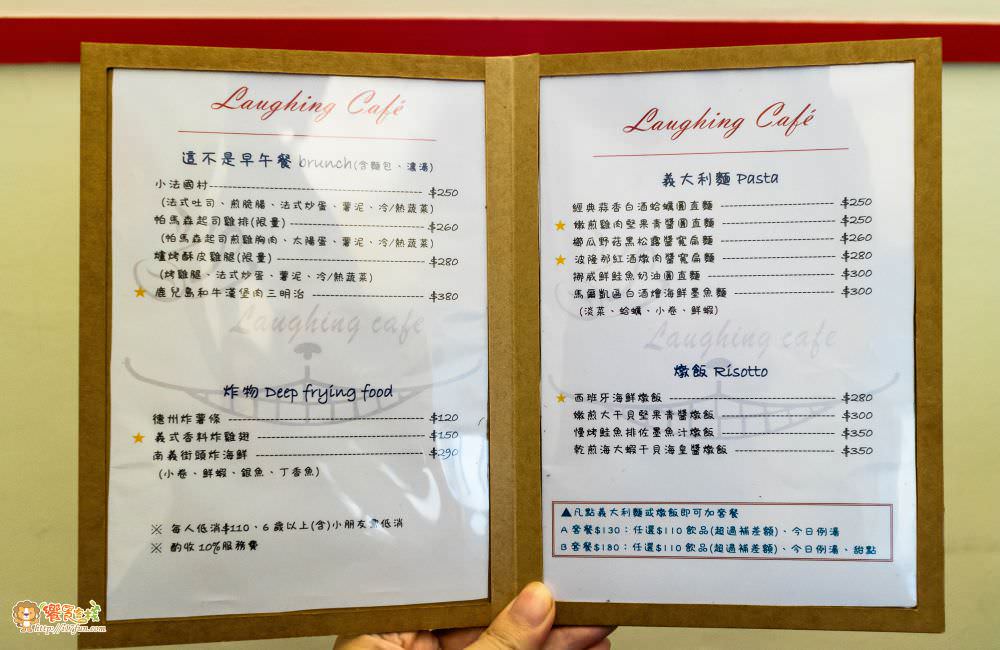 Laughing Café
這不是早午餐 brunch(含麵包、濃湯)
小法國村 $250
(法式吐司、煎脆腸、法式炒蛋、薯泥、冷/熱蔬菜)
帕馬森起司雞排(限量) $260
(帕馬森起司煎雞胸肉、太陽蛋、薯泥、冷/熱蔬菜)
爐烤酥皮雞腿(限量) $280
(烤雞腿、法式炒蛋、薯泥、冷/熱蔬菜)
★ 鹿兒島和牛漢堡肉三明治 $380
Laughing cafe
炸物 Deep frying food
德州炸薯條 $120
★ 義式香料炸雞翅 $150
南義街頭炸海鮮 $290
(小卷、鮮蝦、銀魚、丁香魚)
※ 每人低消$110、6歲以上(含)小朋友需低消
※ 酌收10%服務費
Laughing Café
義大利麵 Pasta
經典蒜香白酒蛤蠣圓直麵 $250
★ 嫩煎雞肉堅果青醬圓直麵 $250
櫛瓜野菇黑松露醬寬扁麵 $260
★ 波隆那紅酒燉肉醬寬扁麵 $280
挪威鮮鮭魚奶油圓直麵 $300
馬爾凱區白酒燴海鮮墨魚麵 $300
(淡菜、蛤蠣、小卷、鮮蝦)
Laughing cafe
燉飯 Risotto
★ 西班牙海鮮燉飯 $280
嫩煎大干貝堅果青醬燉飯 $300
慢烤鮭魚排佐墨魚汁燉飯 $350
乾煎海大蝦干貝海皇醬燉飯 $350
▲凡點義大利麵或燉飯即可加套餐
A 套餐$130：任選$110飲品(超過補差額)、今日例湯
B 套餐$180：任選$110飲品(超過補差額)、今日例湯、甜點
http://i97fun.com